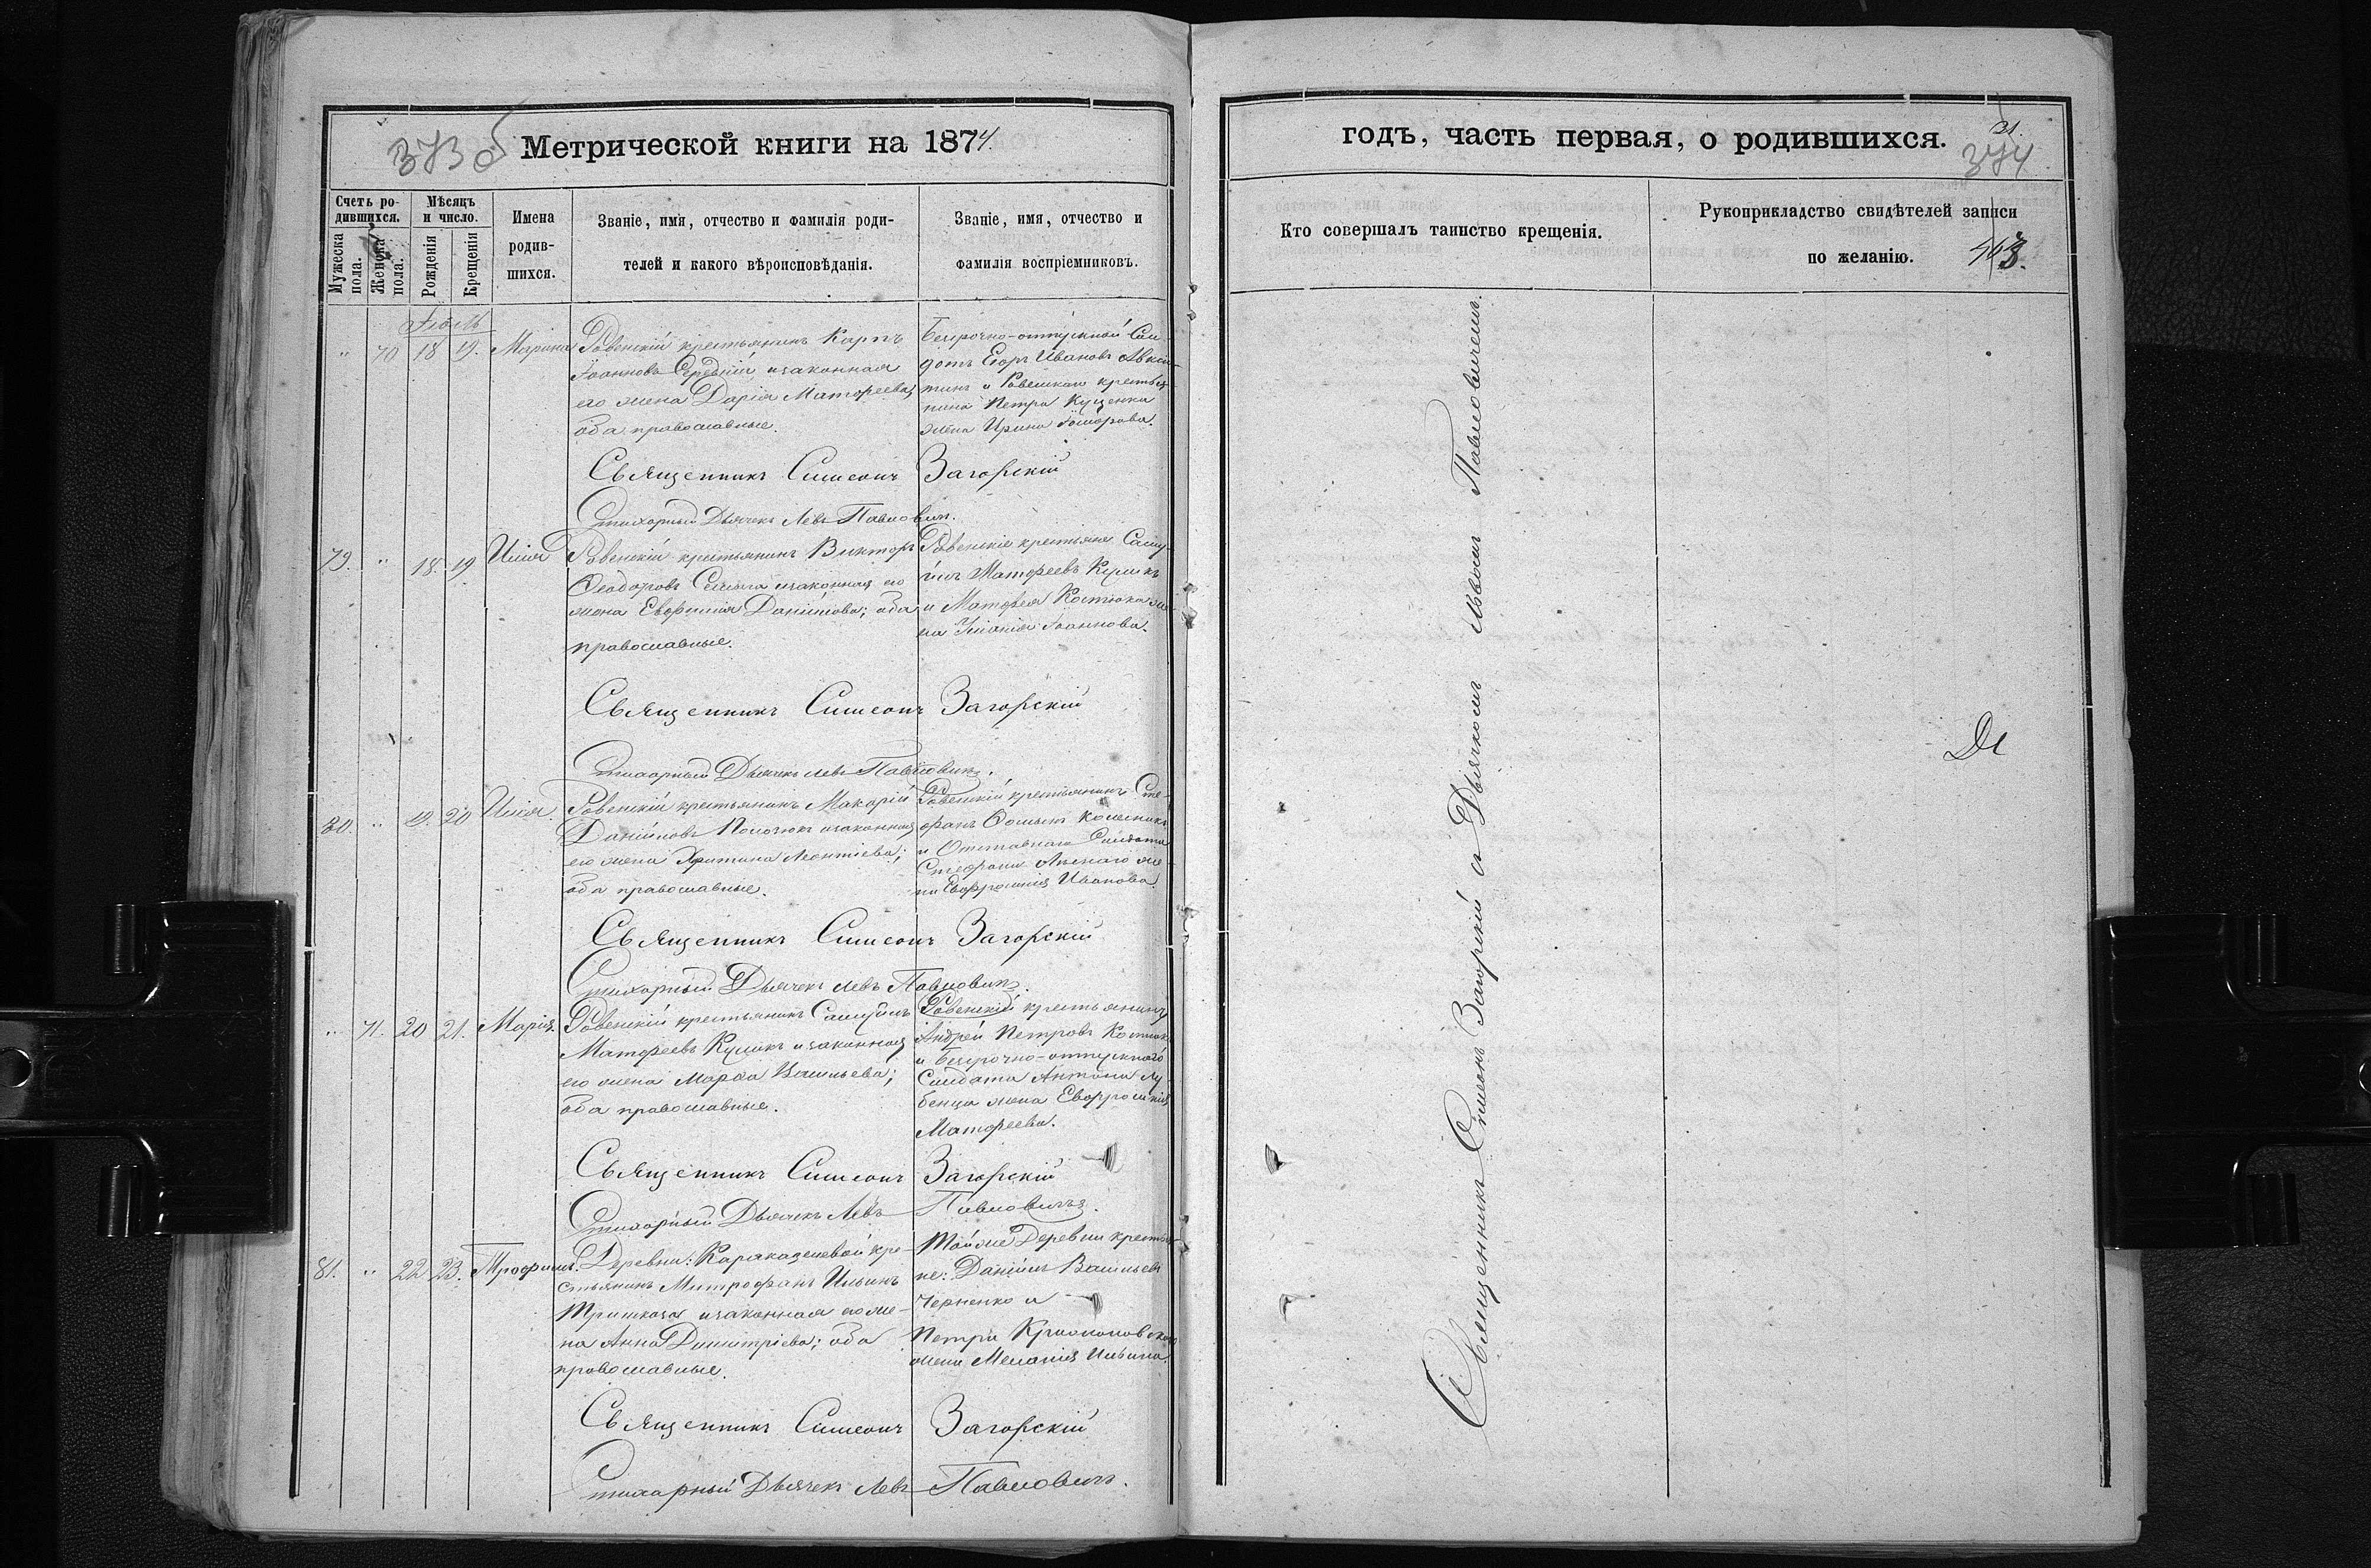 373 об
Метрической книги на 1874
Счетъ ро-
дившихся.
Мужеска пола.
Женска пола.
Мѣсяцъ
и число.
Рожденія
Крещенія
Имена
родив-
шихся.
Званіе, имя, отчество и фамилія роди-
телей и какого вѣроисповѣданія.
Званіе, имя, отчество и
фамилія воспріемниковъ.
Іюль
" 70 18 19. Марина
Ровенскій крестьянинъ Карпъ
Іоанновъ Середній и законная
его жена Дарія Матфеева;
оба православные.
Безсрочно-отпускной Сол-
датъ Егоръ Ивановъ
и крестья-
нина Петра Куценка
жена Ирина
Священникъ Симеонъ Загорскій
Стихарный Дьячекъ Левъ Павловичъ.
79. " 18. 19 Илія
Ровенскій крестьянинъ Викторъ
Ѳеодоровъ и законная его
жена Евфимія Даніилова; оба
православные.
Ровенскіе крестьяне Саму-
илъ Матфеевъ Куликъ
и Матфея Костюка же-
на Іоаннова.
Священникъ Симеонъ Загорскій
Стихарный Дьячекъ Левъ Павловичъ.
80. " 19. 20 Илія.
Ровенскій крестьянинъ Макарій
Даніиловъ и законная
его жена Христина Леонтіева;
оба православные.
Ровенскій крестьянинъ Сте-
фанъ Колесникъ
и Отставнаго Солдата
Стефана же-
на Евфросинія Иванова.
Священникъ Симеонъ Загорскій
Стихарный Дьячекъ Левъ Павловичъ.
" 71. 20 21. Марія.
Ровенскій крестьянинъ Самуилъ
Матфеевъ Куликъ и законная
его жена Марѳа Васильева;
оба православные.
Ровенскій крестьянинъ
Андрей Петровъ Костюкъ
и безсрочно-отпускнаго
Солдата Антона Лу-
бенца жена Евфросинія
Матфеева.
Священникъ Симеонъ Загорскій
Стихарный Дьячекъ Левъ Павловичъ.
81. " 22 23. Трофимъ.
Деревни: кре-
стьянинъ Митрофанъ Ильинъ
и законная его же-
на Анна Димитріева; оба
православные.
Той же Деревни крестья-
не: Даніилъ Васильевъ
Черненко и
Петра
жена Меланія Ильина.
Священникъ Симеонъ Загорскій
Стихарный Дьячекъ Левъ Павловичъ.
годъ, часть первая, о родившихся.
21.
374
Кто совершалъ таинство крещенія.
Рукоприкладство свидѣтелей записи
по желанію.
Священникъ Симеонъ Загорскій съ Дьячкомъ Львомъ Павловичемъ.